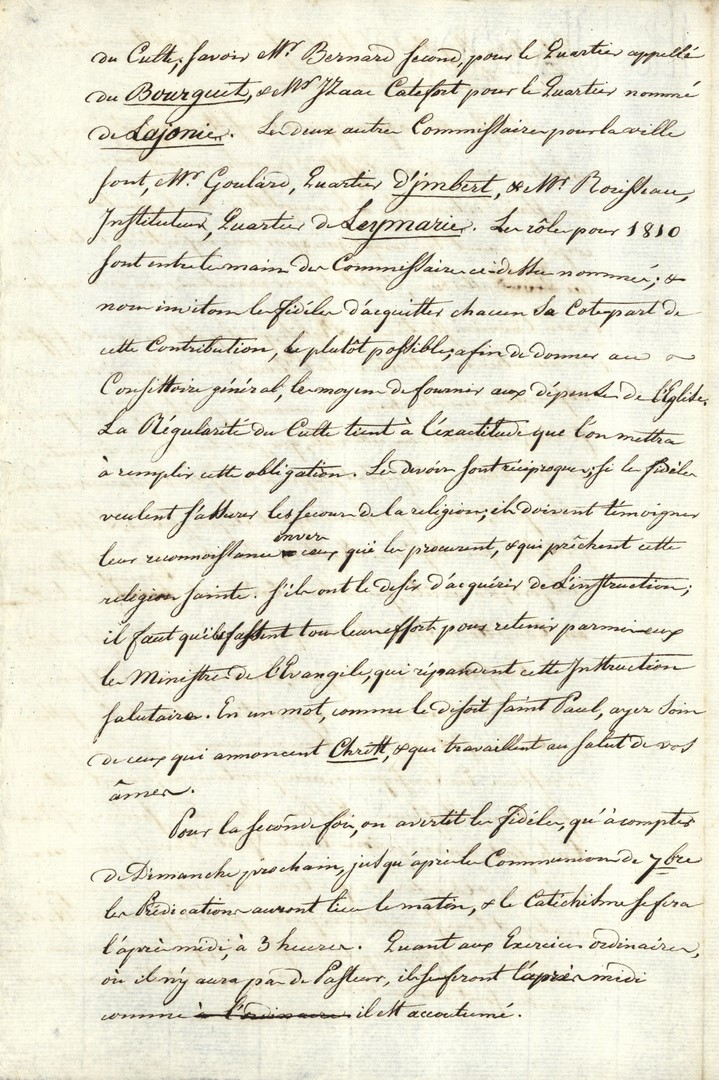 du Culte; savoir Mr. Bernard second, pour le Quartier appellé
du Bourguet, & Mr. Izaac Catefort pour le Quartier nommé
de Lajonie. Les deux autres Commissaires pour la ville
sont, Mr. Goulard, Quartier d'jmbert, & Mr. Roisseau,
Instituteur, Quartier de Leymarie. Les rôles pour 1810
sont entre les mains des Commissaires ci-dessus nommés; &
nous invitons les fidéles d'acquitter chacun sa Cotepart de
cette Contribution, le plutôt possible, afin de donner au
Consistoire général, les moyens de fournir aux dépenses de l'Eglise.
La Régularité du Culte tient à l'exactitude que l'on mettra
à remplir cette obligation. Les devoirs sont réciproques; si les fidéles
veulent s'assurer les secours de la religion; ils doivent témoigner
leur reconnoissance envers ceux qui les procurent, & qui prêchent cette
religion sainte. s'ils ont le desir d'acquérir de l'instruction;
il faut qu'ils fassent tous leurs efforts pour retenir parmi eux
les Ministres de l'Evangile, qui répandent cette Instruction
salutaire. En un mot, comme le disoit saint Paul, ayez soin
de ceux qui annoncent Christ, & qui travaillent au salut de vos
âmes.
Pour la seconde fois, on avertit les fidéles, qu'à compter
de Dimanche prochain, jusqu'après les Communions de 7bre
les Prédications auront lieu le matin, & le Catéchisme se fera
l'après midi, à 3 heures. Quant aux Exercices ordinaires,
où il n'y aura pas de Pasteur, ils se feront l'après midi
comme à l'ordinaire il est accoutumé.